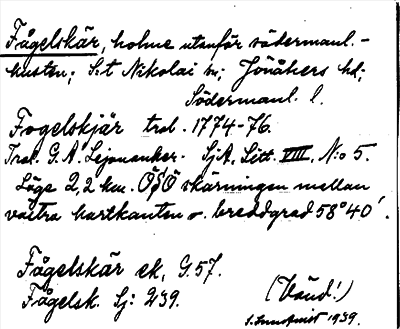 Fågelskär, holme utanför södermanl.-
kusten; S:t Nikolai sn; Jönåkers hd;
Södermanl. l.
Fogelskjär trol. 1774-76.
G. A. Lejonanker. SjA, Litt. VIII, N:o 5.
Läge 2,2 km. OSO skärningen mellan
västra kartkanten o. breddgrad 58°40'.
Fågelskär ek, G.57.
Fågelsk. Sj: 239.
(Vänd!)
1939.